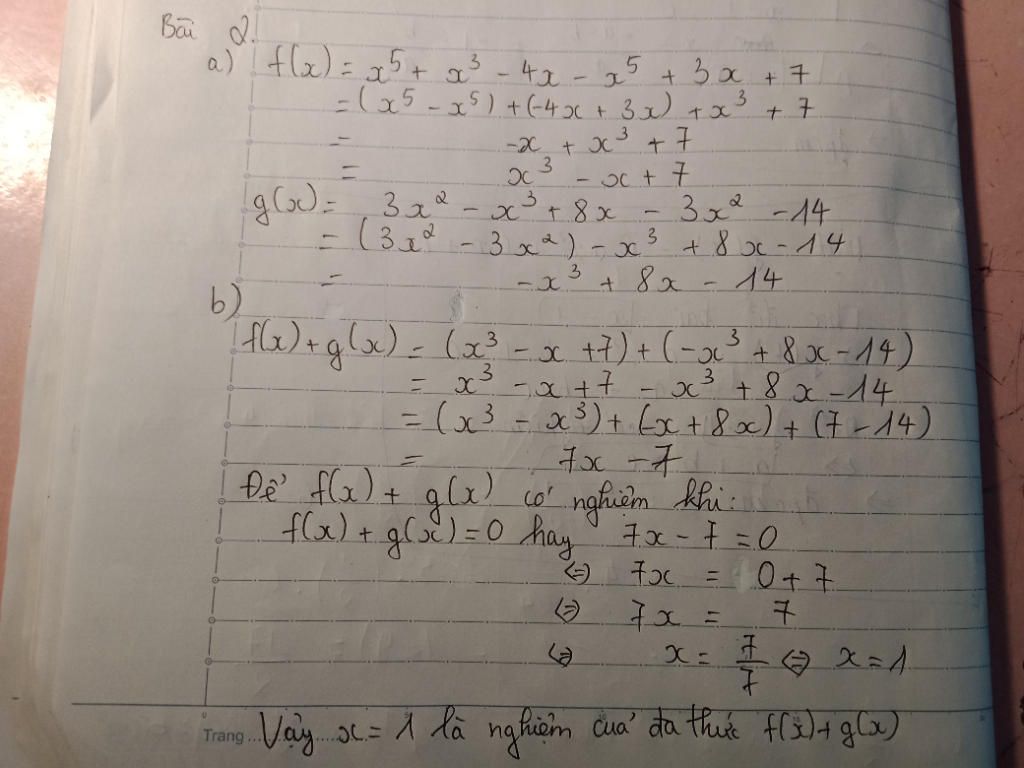 Bài 2.
a) f(x) = x⁵ + x³ - 4x - x⁵ + 3x + 7
= (x⁵ - x⁵) + (-4x + 3x) + x³ + 7
= -x + x³ + 7
= x³ - x + 7
g(x) = 3x² - x³ + 8x - 3x² - 14
= (3x² - 3x²) - x³ + 8x - 14
= -x³ + 8x - 14
b)
f(x) + g(x) = (x³ - x + 7) + (-x³ + 8x - 14)
= x³ - x + 7 - x³ + 8x - 14
= (x³ - x³) + (-x + 8x) + (7 - 14)
= 7x - 7
Để f(x) + g(x) có nghiệm khi:
f(x) + g(x) = 0 hay 7x - 7 = 0
⇔ 7x = 0 + 7
⇔ 7x = 7
⇔ x = 7/7 ⇔ x = 1
Trang ... Vậy x = 1 là nghiệm của đa thức f(x) + g(x)